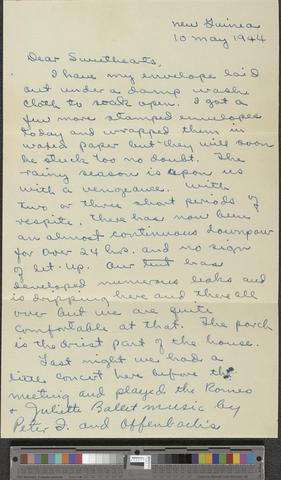 New Guinea
10 May 1944
Dear Sweethearts,
I have my envelope laid
out under a damp wash
cloth to soak open. I got a
few more stamped envelopes
today and wrapped them in
waxed paper but they will soon
be stuck too no doubt. The
rainy season is upon us
with a vengeance. With
two or three short periods of
respite, there has now been
an almost continuous downpour
for over 24 hrs. and no sign
of let-up. Our tent has
developed numerous leaks and
is dripping here and there all
over but we are quite
comfortable at that. The porch
is the driest part of the house.
Last night we had a
little concert here before the
meeting and played the Romeo
& Juliette Ballet music by
Peter I. and Offenbach's